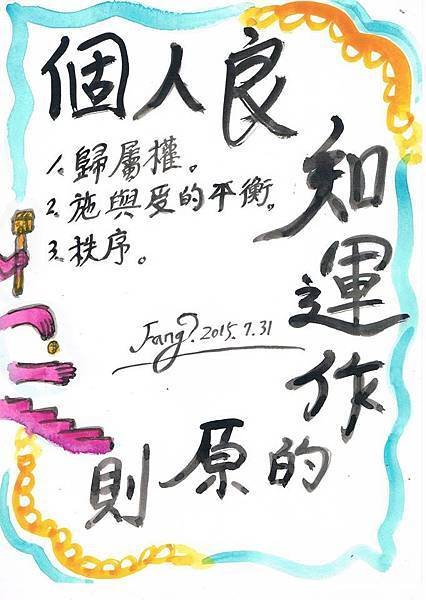 個人良
知運作
的原則
1、歸屬權。
2、施與受的平衡。
3、秩序。
Fang. 2015.7.31